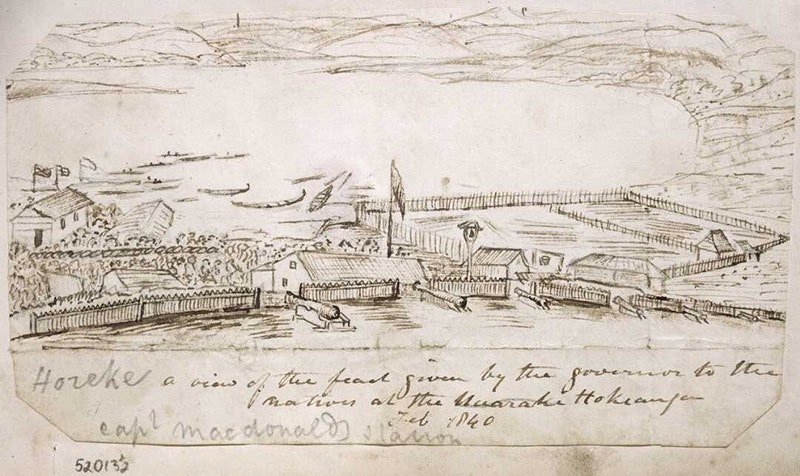 Horeke a view of the feast given by the governor to the
natives at the Huarake Hokeanga
Feb 1840
capt macdonalds station
52013½